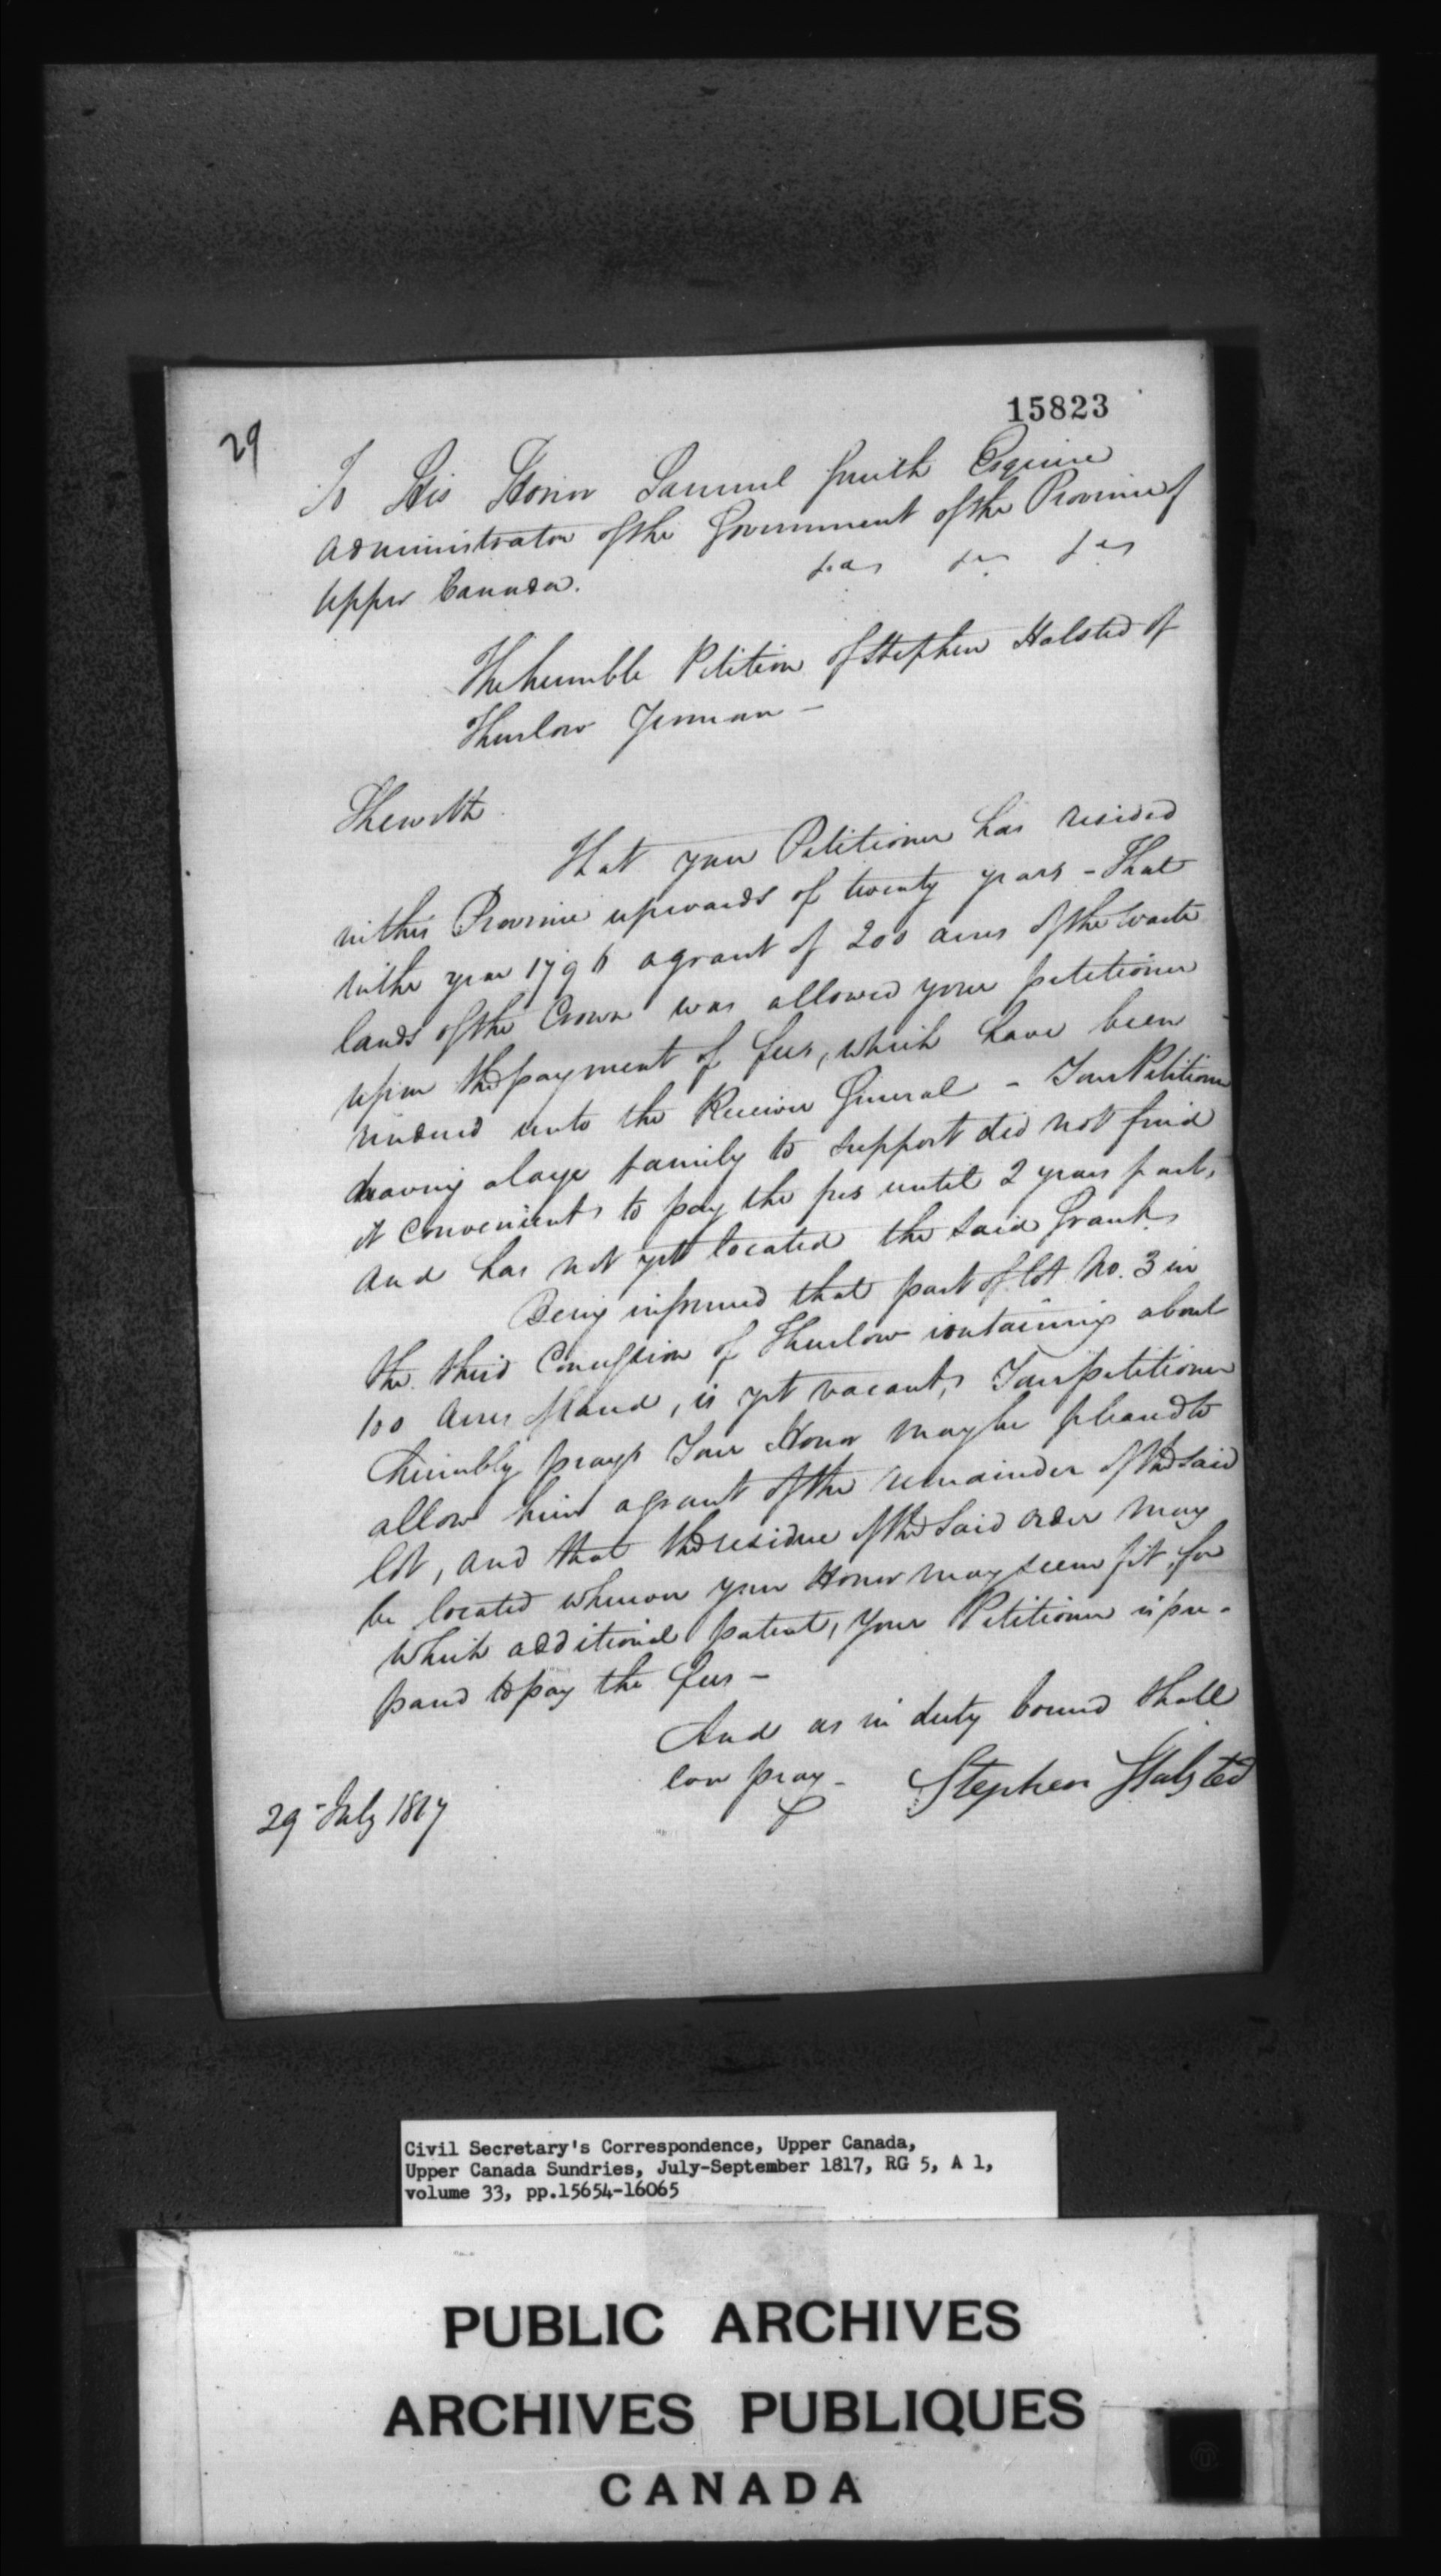 15823
29
To His Honor Samuel Smith Esquire
Administrator of the Government of the Province of
Upper Canada. &ca &ca &ca
The humble Petition of Stephen Halsted of
Thurlow Yeoman -
Sheweth
That your Petitioner has resided
in this Province upwards of twenty years - That
in the year 1796 a grant of 200 acres of the Waste
lands of the Crown was allowed your petitioner
upon the payment of fees, which have been
rendered unto the Receiver General - Your Petitioner
having a large family to support did not find
it convenient to pay the fees until 2 years past,
and has not yet located the said Grant.
Being informed that part of lot No. 3 in
the third Concession of Thurlow containing about
100 Acres of land, is yet vacant, Your petitioner
humbly prays Your Honor may be pleased to
allow him a grant of the remainder of the said
lot, and that the residue of the said order may
be located whereon your Honor may seem fit, for
which additional patent, Your Petitioner is pre-
pared to pay the fees -
And as in duty bound shall
ever pray -
Stephen Halsted
29 July 1817
Civil Secretary's Correspondence, Upper Canada,
Upper Canada Sundries, July-September 1817, RG 5, A 1,
volume 33, pp.15654-16065
PUBLIC ARCHIVES
ARCHIVES PUBLIQUES
CANADA